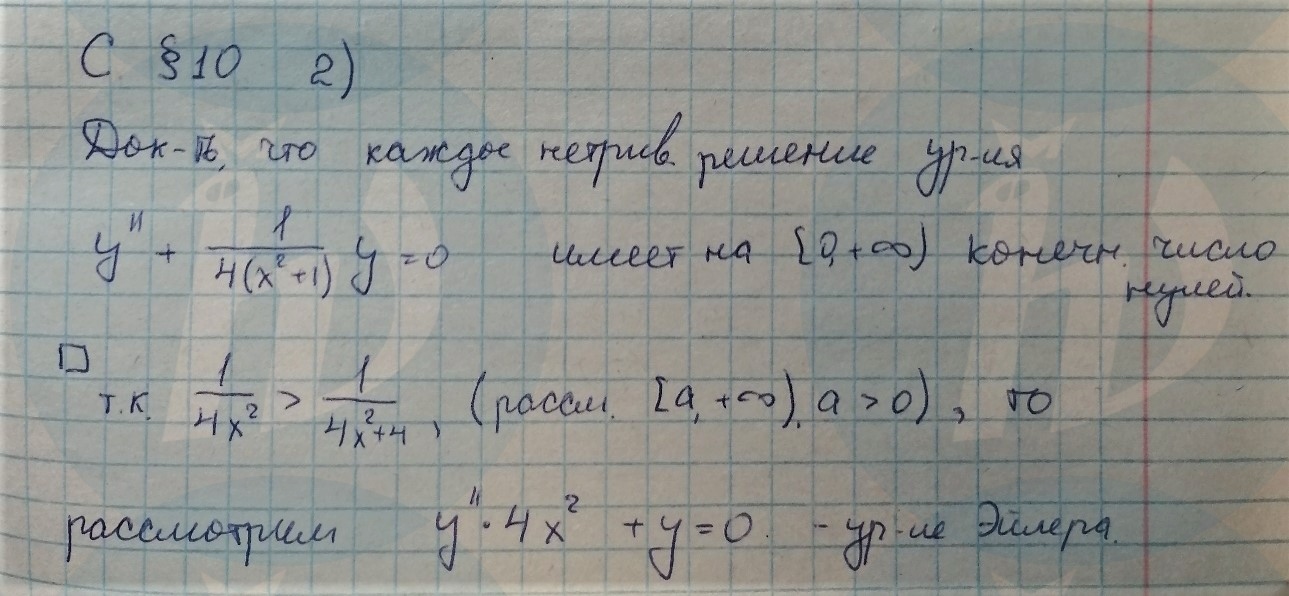 С §10 2)
Док-ть, что каждое нетрив. решение ур-ия
y'' + 1/(4(x²+1)) y = 0 имеет на [0, +∞) конечн. число
нулей.
□ т.к. 1/(4x²) > 1/(4x²+4), (рассм. [a, +∞), a > 0), то
рассмотрим y''·4x² + y = 0. - ур-ие Эйлера.